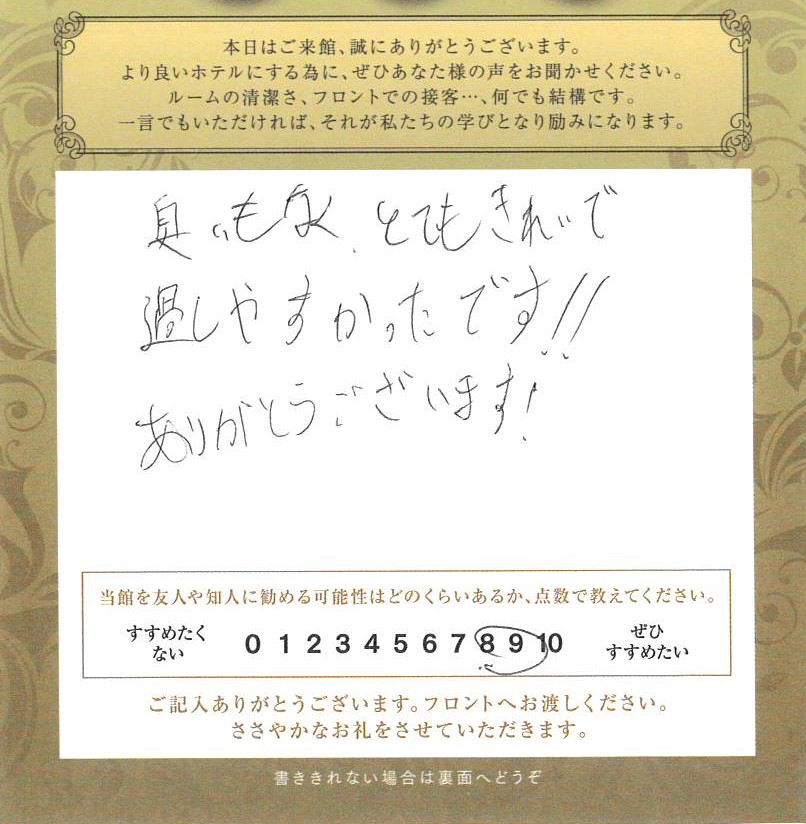 本日はご来館、誠にありがとうございます。
より良いホテルにする為に、ぜひあなた様の声をお聞かせください。
ルームの清潔さ、フロントでの接客…、何でも結構です。
一言でもいただければ、それが私たちの学びとなり励みになります。
臭いもなく、とてもきれいで
過しやすかったです!!
ありがとうございます!
当館を友人や知人に勧める可能性はどのくらいあるか、点数で教えてください。
すすめたく
ない
0 1 2 3 4 5 6 7 8 9 10
ぜひ
すすめたい
ご記入ありがとうございます。フロントへお渡しください。
ささやかなお礼をさせていただきます。
書ききれない場合は裏面へどうぞ